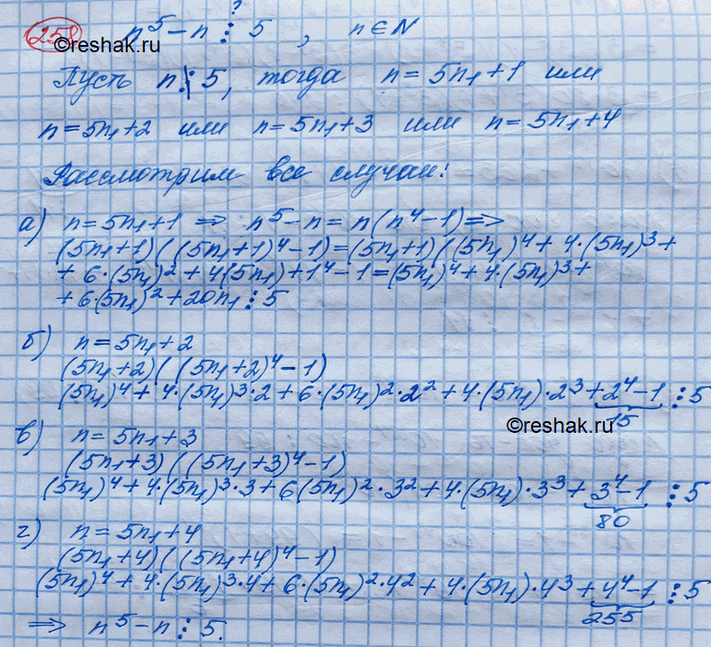 258 n⁵ - n ⋮ 5 , n ∈ N
?
©reshak.ru
Пусть n ⋮̸ 5, тогда n = 5n₁ + 1 или
n = 5n₁ + 2 или n = 5n₁ + 3 или n = 5n₁ + 4
Рассмотрим все случаи:
а) n = 5n₁ + 1 ⇒ n⁵ - n = n(n⁴ - 1) ⇒
(5n₁ + 1)((5n₁ + 1)⁴ - 1) = (5n₁ + 1)((5n₁)⁴ + 4·(5n₁)³ +
+ 6·(5n₁)² + 4(5n₁) + 1⁴ - 1 = (5n₁)⁴ + 4·(5n₁)³ +
+ 6·(5n₁)² + 20n₁ ⋮ 5
б) n = 5n₁ + 2
(5n₁ + 2)((5n₁ + 2)⁴ - 1)
(5n₁)⁴ + 4·(5n₁)³·2 + 6·(5n₁)²·2² + 4·(5n₁)·2³ + 2⁴ - 1 ⋮ 5
15
©reshak.ru
в) n = 5n₁ + 3
(5n₁ + 3)((5n₁ + 3)⁴ - 1)
(5n₁)⁴ + 4·(5n₁)³·3 + 6(5n₁)²·3² + 4·(5n₁)·3³ + 3⁴ - 1 ⋮ 5
80
г) n = 5n₁ + 4
(5n₁ + 4)((5n₁ + 4)⁴ - 1)
(5n₁)⁴ + 4·(5n₁)³·4 + 6·(5n₁)²·4² + 4·(5n₁)·4³ + 4⁴ - 1 ⋮ 5
255
⇒ n⁵ - n ⋮ 5.